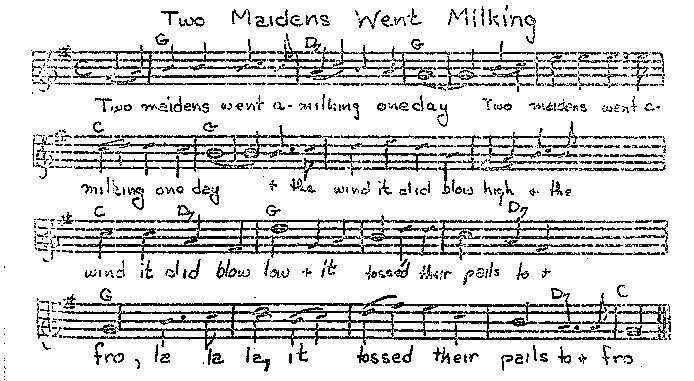 Two Maidens Went Milking
G D7 G
Two maidens went a- milking one day Two maidens went a-
C G
milking one day + the wind it did blow high + the
C D7 G D7
wind it did blow low + it tossed their pails to +
G D7 C
fro, la la la, it tossed their pails to + fro